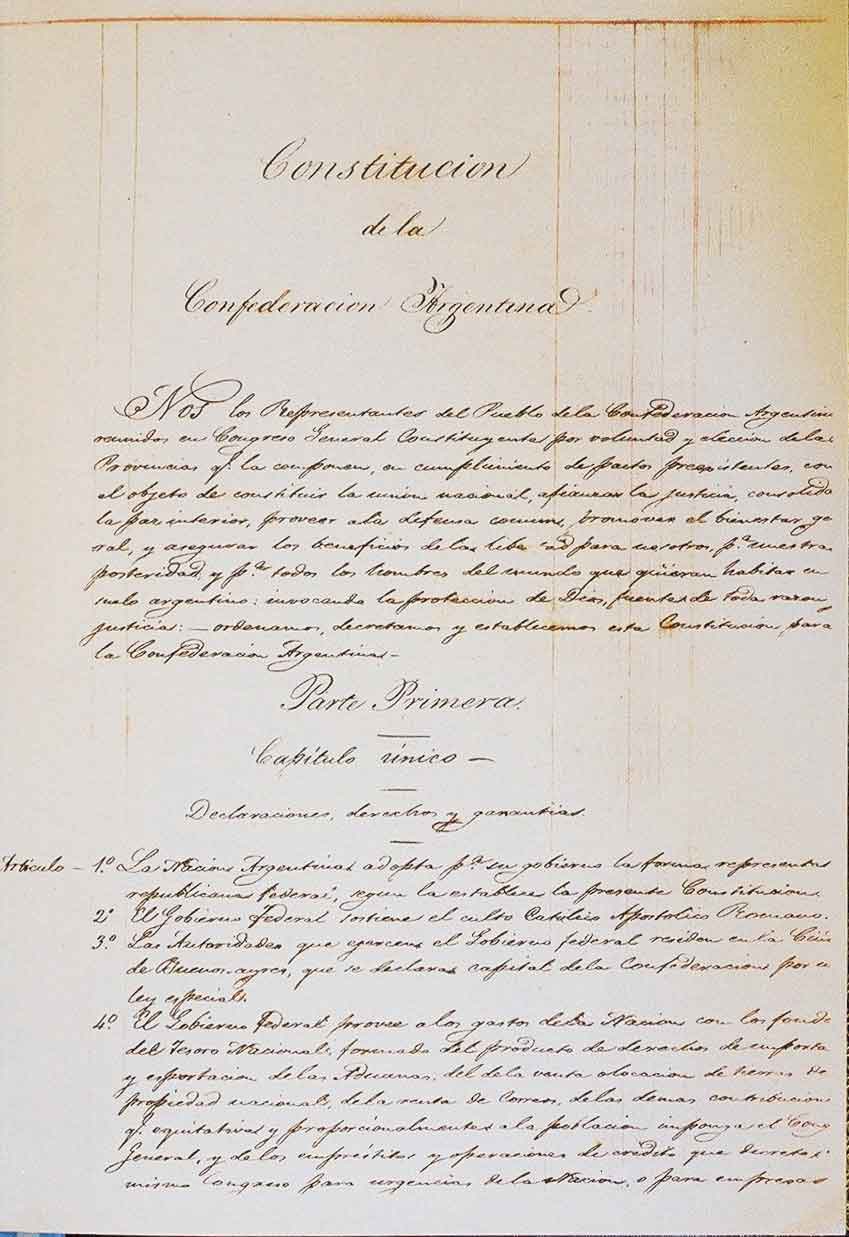 Constitucion
de la
Confederacion Argentina
Nos los Representantes del Pueblo de la Confederacion Argentin
reunidos en Congreso General Constituyente por voluntad y eleccion de las
Provincias q.e la componen, en cumplimiento de pactos preexistentes, con
el objeto de constituir la union nacional, afianzar la justicia, consolida
la paz interior, proveer a la defensa comun, promover el bienestar ge
ral, y asegurar los beneficios de la libertad para nosotros, p.a nuestra
posteridad, y p.a todos los hombres del mundo que quieran habitar en
suelo argentino: invocando la proteccion de Dios, fuente de toda razon
justicia: — ordenamos, decretamos y establecemos esta Constitucion para
la Confederacion Argentina —
Parte Primera.
Capítulo único —
Declaraciones, derechos y garantias.
Articulo — 1.º La Nacion Argentina adopta p.a su gobierno la forma representat
republicana federal, segun la establece la presente Constitucion.
2.º El Gobierno Federal sostiene el culto Católico Apostólico Romano.
3.º Las Autoridades que ejercen el Gobierno federal residen en la Ciu
de Buenos-ayres, que se declara capital de la Confederacion por u
ley especial.
4.º El Gobierno Federal provee a los gastos de la Nacion con los fond
del Tesoro Nacional, formado del producto de derechos de importa
y esportacion de las Aduanas, del de la venta o locacion de tierras de
propiedad nacional, de la renta de Correos, de las demas contribucion
q.e equitativa y proporcionalmente a la poblacion imponga el Cong
General, y de los empréstitos y operaciones de crédito que decrete
mismo Congreso para urgencias de la Nacion, o para empresas